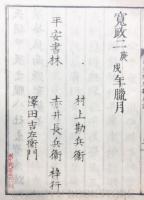 寛政二庚戌年臘月
平安書林
村上勘兵衛
赤井長兵衛 梓行
澤田吉左衛門